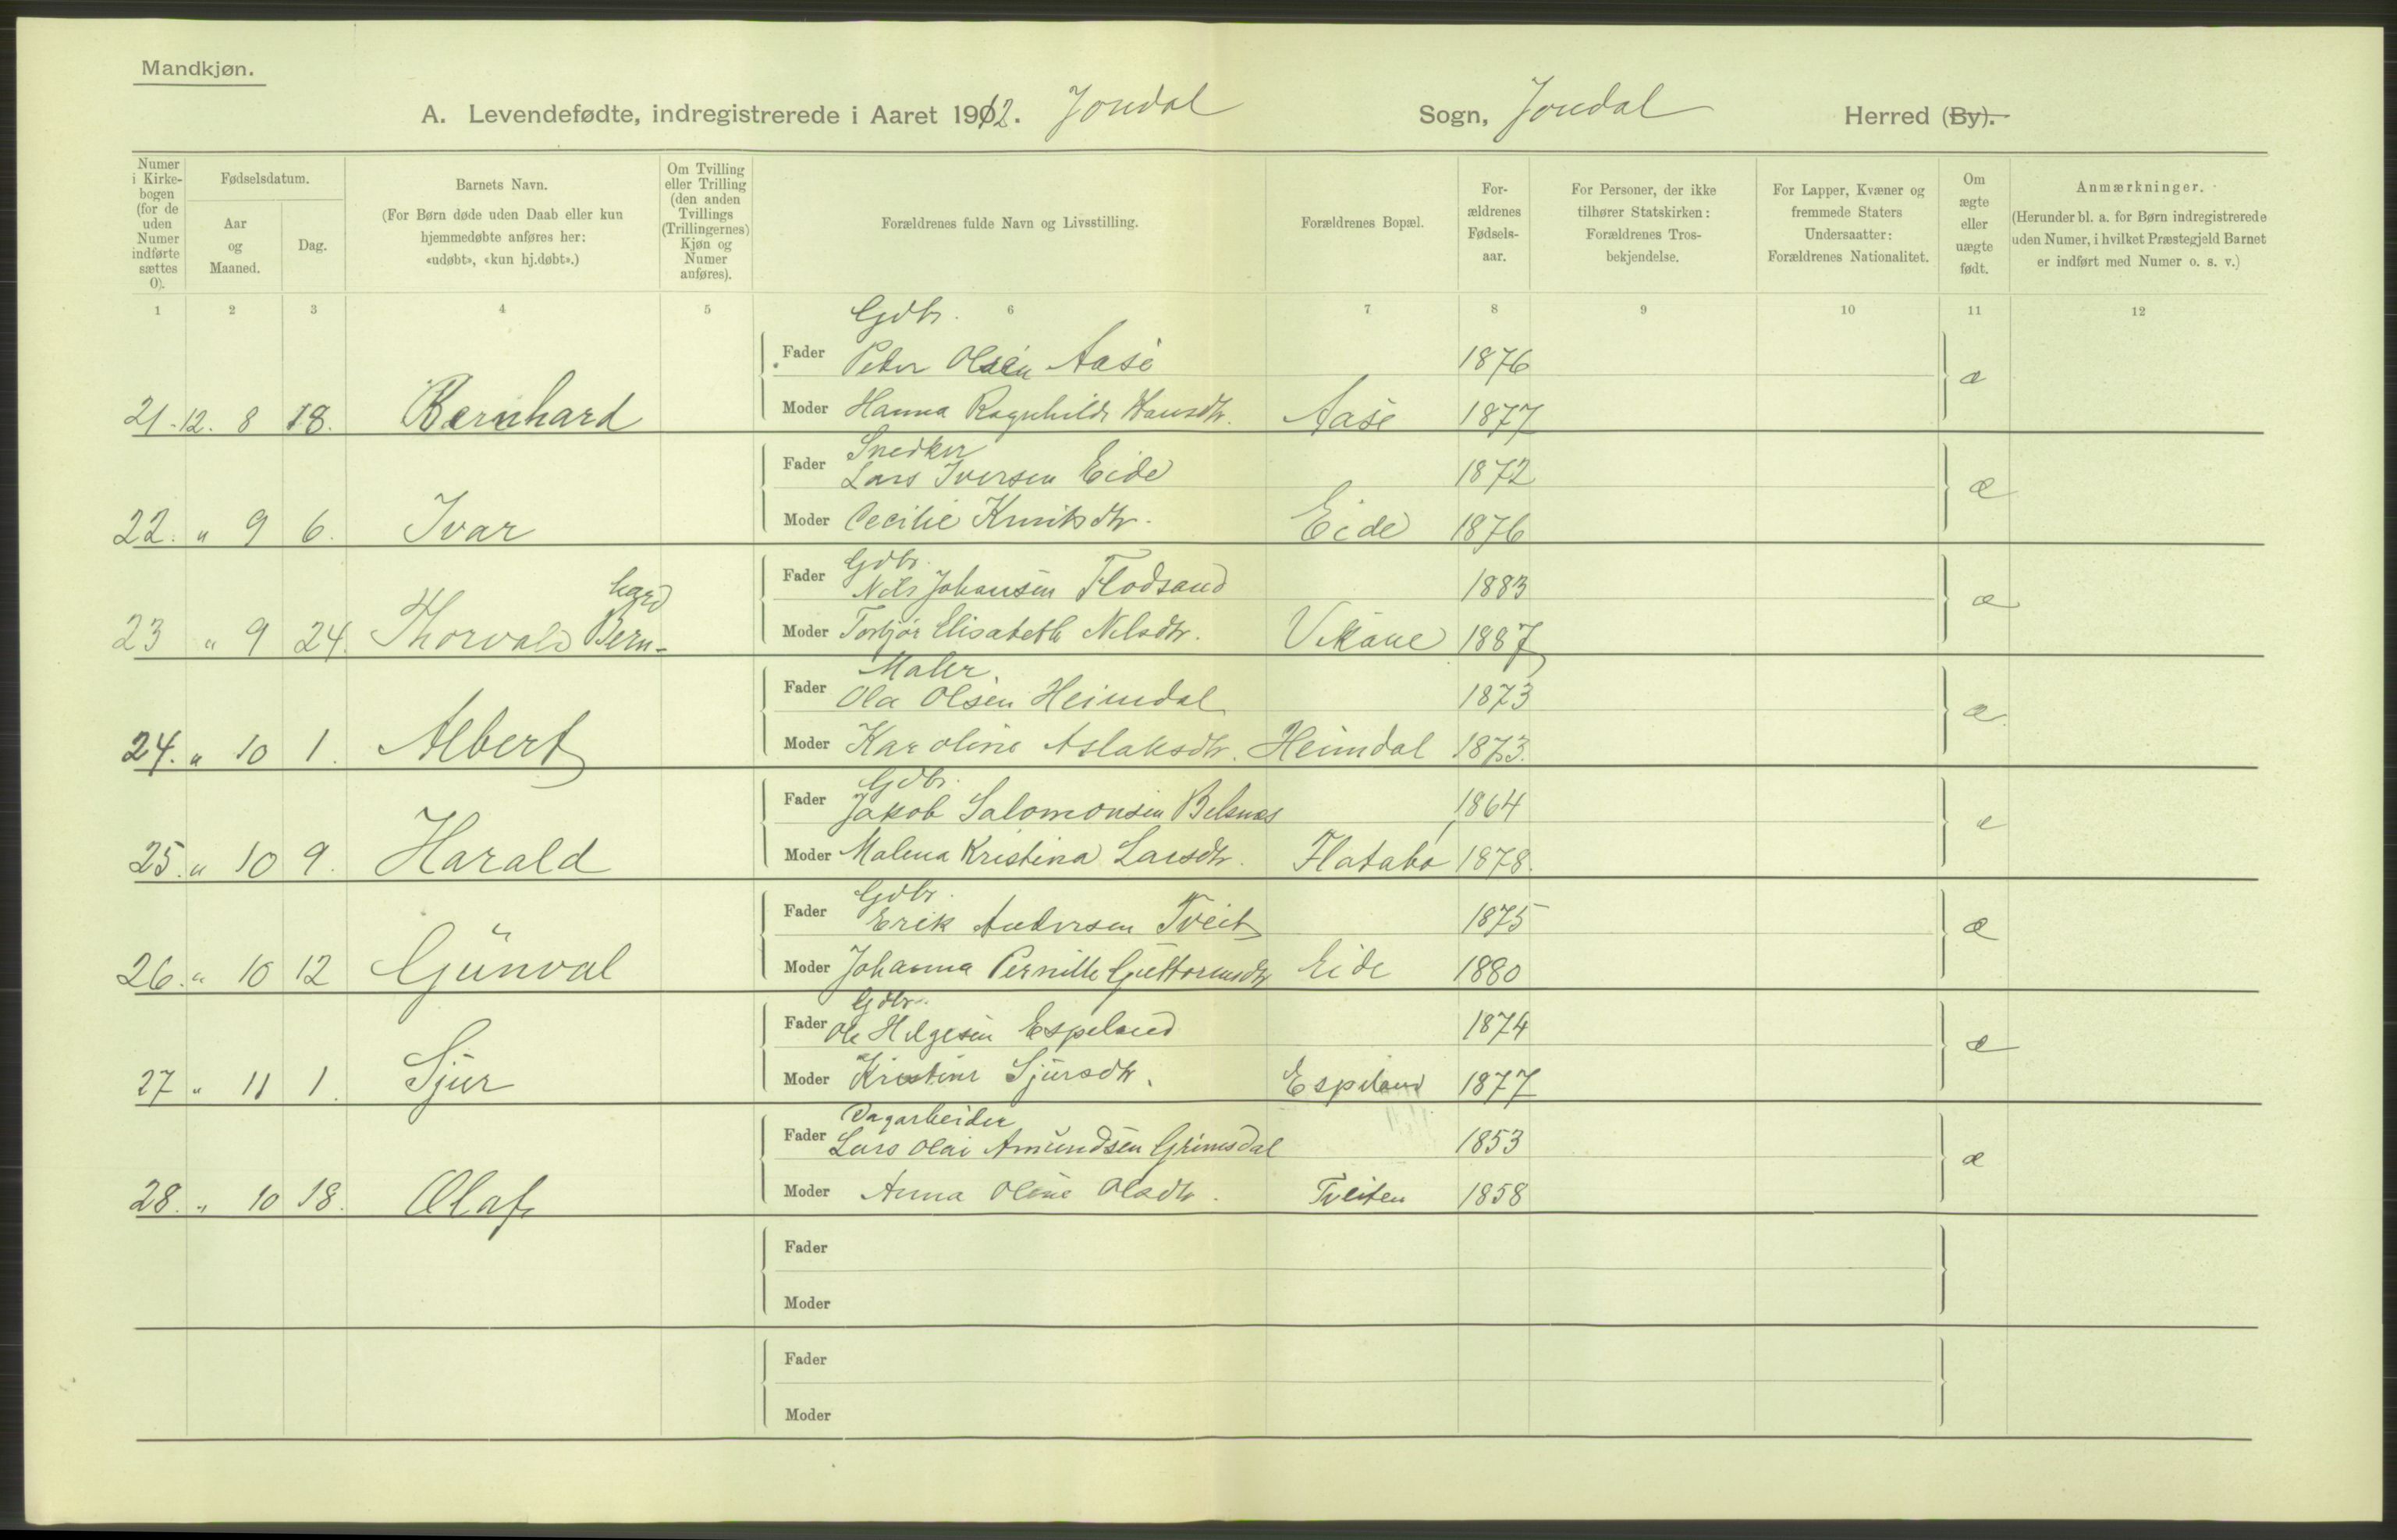 Mandkjøn.
A. Levendefødte, indregistrerede i Aaret 1912. Jondal Sogn, Jondal Herred (By).
Numer i Kirkebogen (for de uden Numer indførte sættes 0).
Fødselsdatum.
Aar og Maaned.
Dag.
Barnets Navn.
(For Børn døde uden Daab eller kun hjemmedøbte anføres her: «udøbt», «kun hj.døbt».)
Om Tvilling eller Trilling (den anden Tvillings (Trillingernes) Kjøn og Numer anføres).
Forældrenes fulde Navn og Livsstilling.
Forældrenes Bopæl.
Forældrenes Fødselsaar.
For Personer, der ikke tilhører Statskirken: Forældrenes Trosbekjendelse.
For Lapper, Kvæner og fremmede Staters Undersaatter: Forældrenes Nationalitet.
Om ægte eller uægte født.
Anmærkninger.
(Herunder bl. a. for Børn indregistrerede uden Numer, i hvilket Præstegjeld Barnet er indført med Numer o. s. v.)
1 2 3 4 5 6 7 8 9 10 11 12
Gdbr.
Fader Peder Olsen Aase 1876 æ
21. 12. 8 18. Bernhard Moder Hanna Ragnhilda Hansdtr. Aase 1877
Snedker
Fader Lars Iversen Eide 1872 æ
22. " 9 6. Ivar Moder Cecilie Knutsdtr. Eide 1876
Gdbr.
Fader Nils Johansen Flodsand 1883 æ
hard
23 " 9 24. Thorvald Bern- Moder Torbjør Elisabeth Nilsdtr. Vikane 1887
Maler.
Fader Ola Olsen Heimdal 1873 æ
24. " 10 1. Albert Moder Karoline Aslaksdtr. Heimdal 1873.
Gdbr.
Fader Jakob Salomonsen Belsnæs 1864 æ
25. " 10 9. Harald Moder Malena Kristina Larsdtr. Flatabø 1878.
Gdbr.
Fader Erik Andersen Tveit 1875 æ
26. " 10 12 Gunval Moder Johanna Pernille Guttormsdtr Eide 1880
Gdbr.
Fader Ole Helgesen Espeland 1874 æ
27 " 11 1. Sjur Moder Kristine Sjursdtr. Espeland 1877
Dagarbeider
Fader Lars Olai Amundsen Grimsdal 1853 æ
28. " 10 18. Olaf Moder Anna Oline Olsdtr. Tveiten 1858
Fader
Moder
Fader
Moder